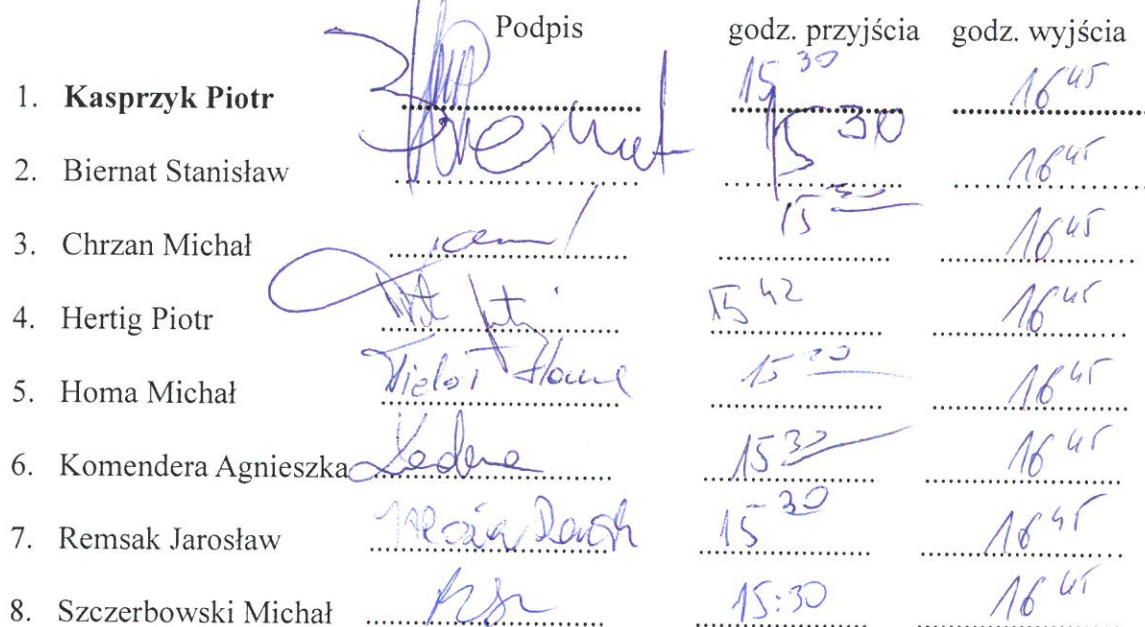 Podpis godz. przyjścia godz. wyjścia
1. Kasprzyk Piotr 15 30 16 45
2. Biernat Stanisław Biernat 15 30 16 45
3. Chrzan Michał 15 30 16 45
4. Hertig Piotr 15 42 16 45
5. Homa Michał Homa 15 30 16 45
6. Komendera Agnieszka 15 30 16 45
7. Remsak Jarosław 15 30 16 45
8. Szczerbowski Michał 15:30 16 45